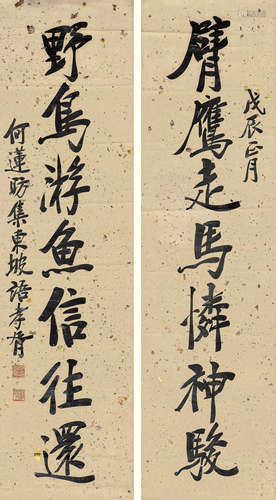 臂鷹走馬憐神駿
戊辰正月
野鳥游魚信往還
何蓮昉集東坡語孝胥